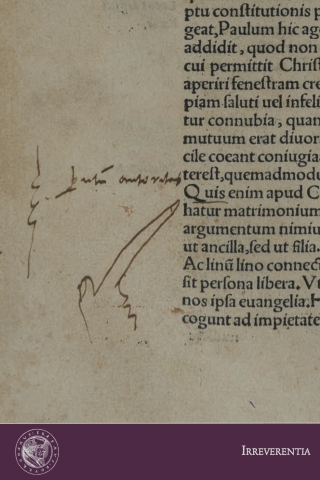 ptu constitutionis p
geat, Paulum hic ag
addidit, quod non
cui permittit Christ
aperiri fenestram cre
piam saluti uel infeli
tur connubia, quam
mutuum erat diuor
cile coeant coniugia
terest, quemadmodu
Quis enim apud C
hatur matrimonium
argumentum nimiu
ut ancilla, sed ut filia.
Ac linū lino connect
sit persona libera. Vt
nos ipsa euangelia. H
cogunt ad impietate
IRREVERENTIA